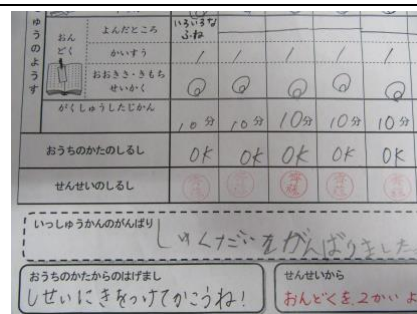 ゅうのようす
おんどく
よんだところ
いろいろな
ふね
かいすう
/ / / / /
おおきさ・きもち
せいかく
がくしゅうしたじかん
10分 10分 10分 10分 10分
おうちのかたのしるし
OK OK OK OK OK
せんせいのしるし
いっしゅうかんのがんばり
しゅくだいをがんばりました
おうちのかたからのはげまし
しせいにきをつけてかこうね!
せんせいから
おんどくを、2かい よ